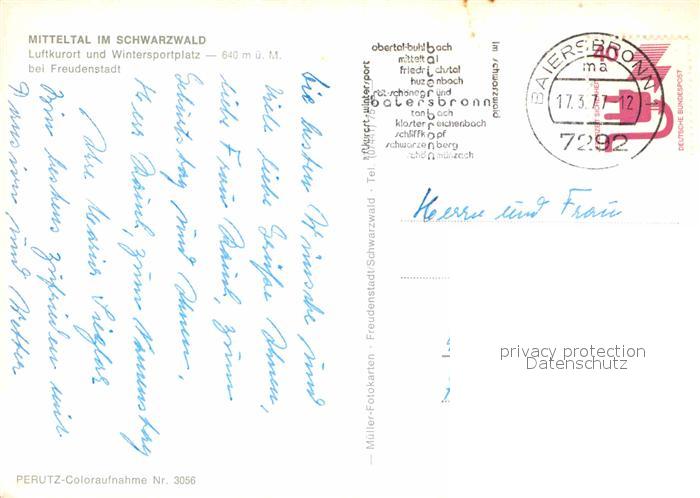 MITTELTAL IM SCHWARZWALD
Luftkurort und Wintersportplatz — 640 m ü. M.
bei Freudenstadt
Die besten Wünsche und
viele liebe Grüße Ihnen,
liebe Frau Rauch, zum
Geburtstag und Ihnen,
Herr Rauch, zum Namenstag
Ihre Maria
Bin bestens zufrieden mit
und Wetter
PERUTZ-Coloraufnahme Nr. 3056
Müller-Fotokarten · Freudenstadt/Schwarzwald · Tel.
obertal-buhlbach
mitteltal
friedrichstal
huzenbach
röt-schönegründ
baiersbronn
tanbach
klosterreichenbach
schliffkopf
schwarzenberg
schönmünzach
luftkurort-wintersport
im schwarzwald
BAIERSBRONN
ma
17.3.77-12
7292
40
DEUTSCHE BUNDESPOST
Herrn und Frau
privacy protection
Datenschutz